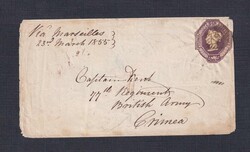 Via Marseilles
23rd March 1855
Captain
77th Regiment
British Army
Crimea